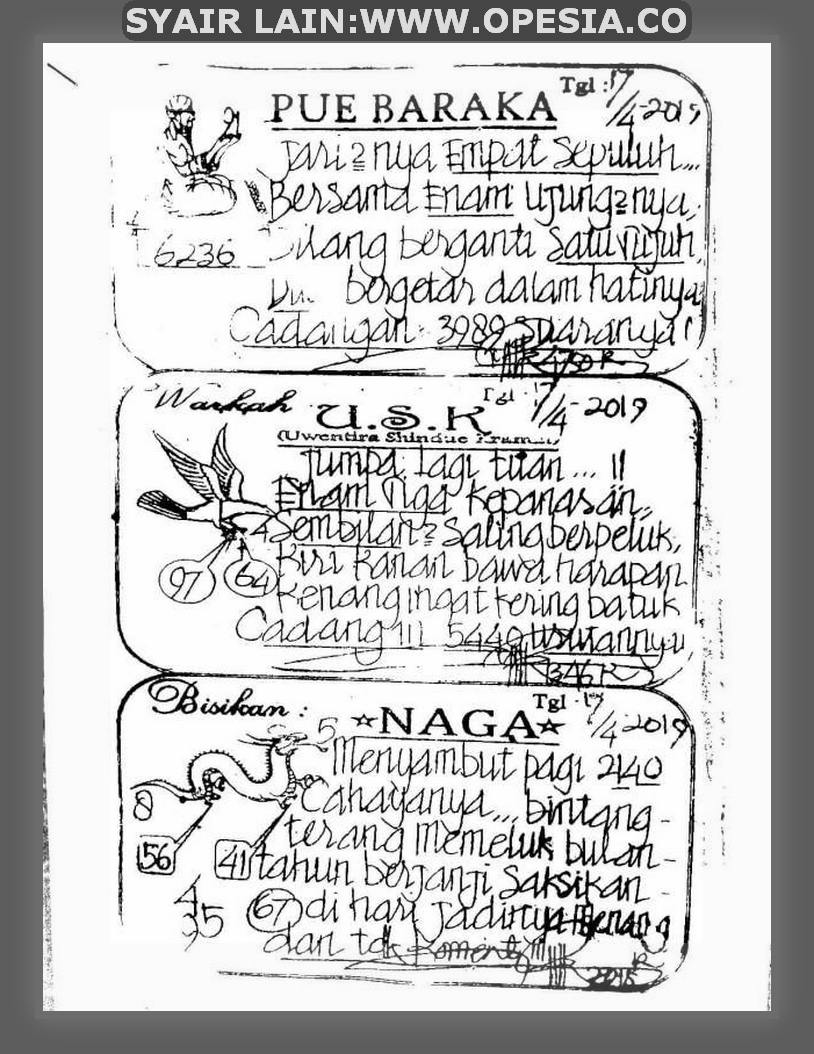 SYAIR LAIN:WWW.OPESIA.CO
Tgl : 17/4-2019
PUE BARAKA
21
Jari2nya Empat Sepuluh...
Bersama Enam Ujung2nya,
6236
berganti Satu Tujuh,
bergetar dalam hatinya
Cadangan 3989 Suaranya!
Warkah
Tgl : 17/4-2019
U.S.K
(Uwentira Shindue
Jumpa lagi tuan ... !!
Enam Tiga Kepanasan,,
Sembilan2 Saling berpeluk,
Kiri Kanan bawa harapan
97 64
Kenang ingat kering batuk
Cadang !!! 5449
Bisikan :
Tgl 17/4-2019
☆NAGA☆
5
Menyambut pagi 2140
Cahayanya... bintang -
8
terang Memeluk bulan -
56 41
tahun berjanji Saksikan -
4
35
67 di hari jadinya
dan tak Koment !!!